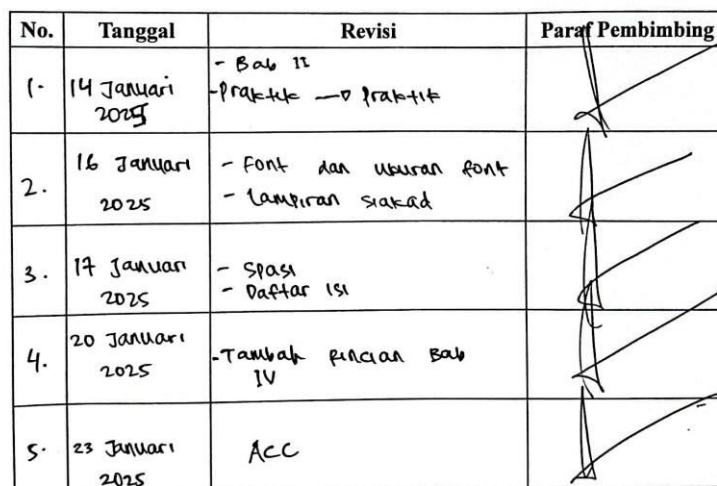 No. Tanggal Revisi Paraf Pembimbing
1. 14 Januari 2025 - Bab II
- Praktik → Praktik
2. 16 Januari 2025 - Font dan ukuran font
- Lampiran siakad
3. 17 Januari 2025 - Spasi
- Daftar Isi
4. 20 Januari 2025 - Tambah rincian Bab
IV
5. 23 Januari 2025 ACC